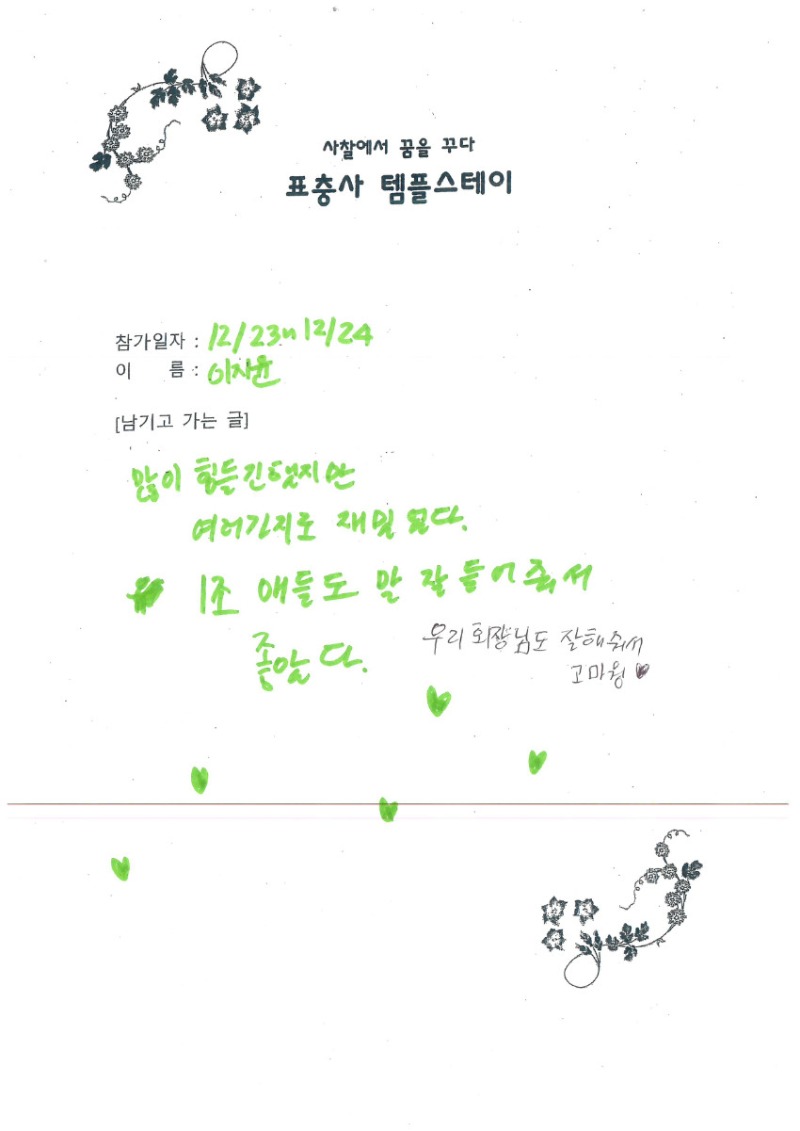 사찰에서 꿈을 꾸다
표충사 템플스테이
참가일자 : 12/23~12/24
이 름 : 이지윤
[남기고 가는 글]
많이 힘들긴했지만
여러가지로 재밌었다.
1조 애들도 말 잘 들어줘서
좋았다.
우리 회장님도 잘해줘서
고마웡